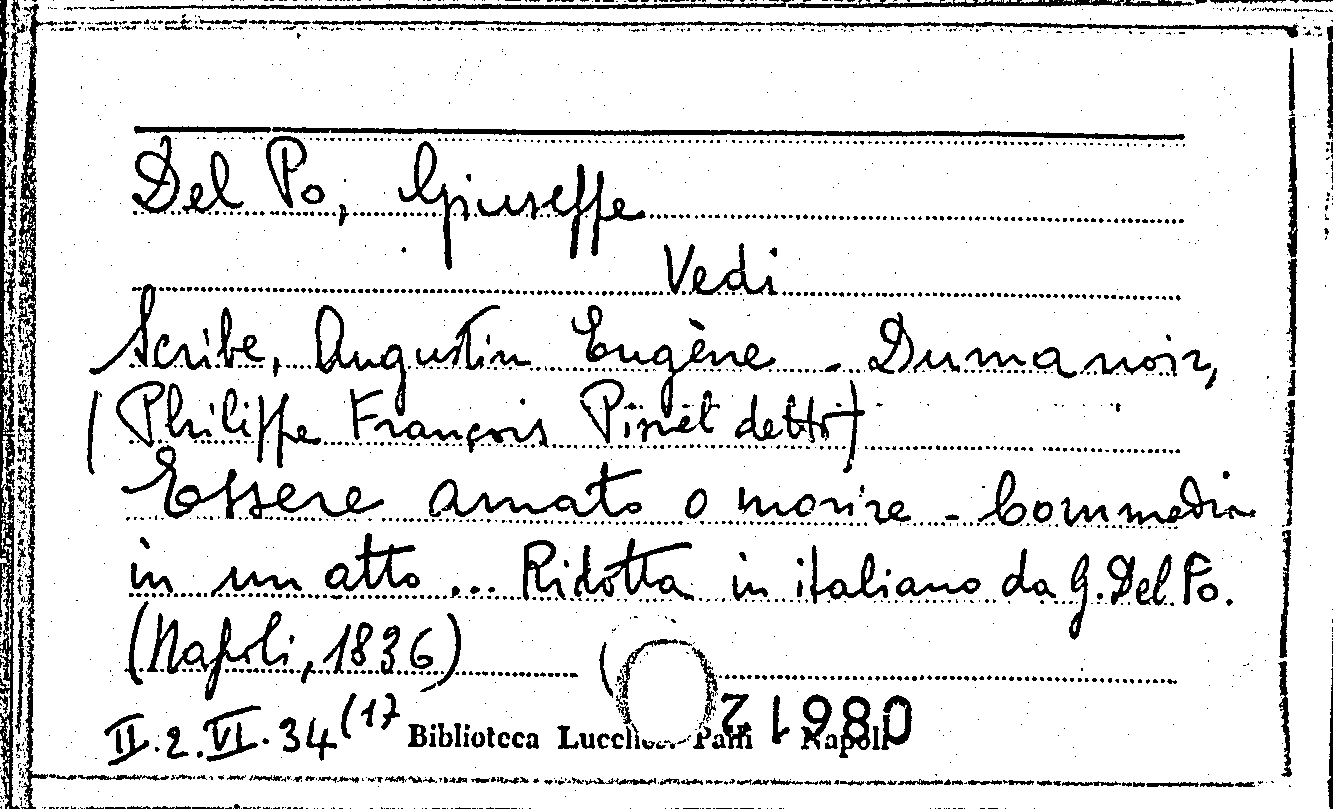 Del Po, Giuseppe
Vedi
Scribe, Augustin Eugène - Dumanoir,
(Philippe François Pinel detto)
Essere amato o morire - Commedia
in un atto ... Ridotta in italiano da G. Del Po.
(Napoli, 1836) (
II.2.VI.34(17
Biblioteca Palli Napoli
08612